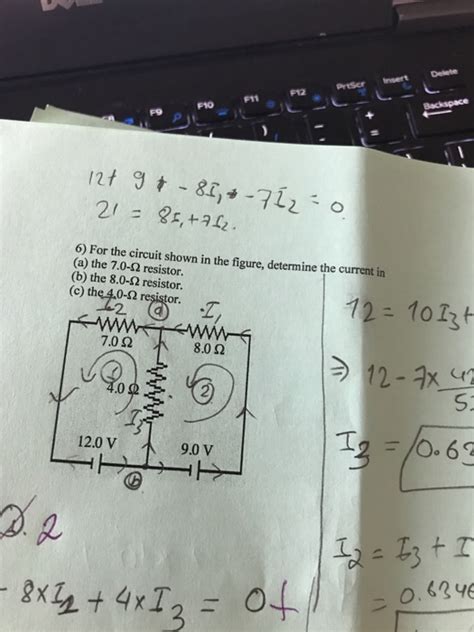 DELL
F9 F10 F11 F12 PrtScr Insert Delete
Backspace
12+ 9 - 8I1 - 7I2 = 0
21 = 8I1+7I2.
6) For the circuit shown in the figure, determine the current in
(a) the 7.0-Ω resistor.
(b) the 8.0-Ω resistor.
(c) the 4.0-Ω resistor.
I2 a I1
7.0 Ω 8.0 Ω
1 4.0 Ω 2
I3
12.0 V 9.0 V
b
12 = 10I3+
⇒ 12-7×
I3 = 0.63
I2 = I3 + I
= 0.6346
2
- 8×I2 + 4×I3 = 0